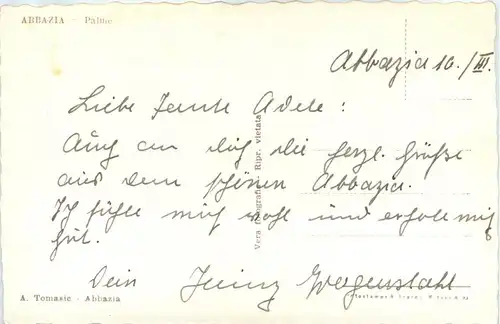 ABBAZIA - Palme
Abbazia 10./III.
Liebe Tante Adele:
Auch an dich die herzl. Grüße
aus dem schönen Abbazia.
Ich fühle mich wohl und erhole mich
gut.
Dein Heinz
Vera fotografia - Ripr. vietata
A. Tomasic - Abbazia